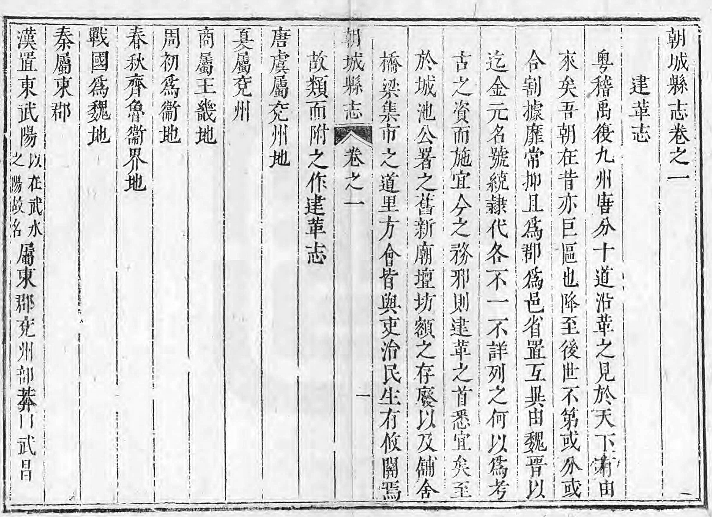 朝城縣志卷之一
建革志
粵稽禹後九州唐分十道沿革之見於天下者由
來矣吾朝在昔亦巨區也降至後世不第或分或
合割據靡常抑且為郡為邑省置互異由魏晉以
迄金元名號統隸代各不一不詳列之何以為考
古之資而施宜今之務邪則建革之首悉宜矣至
於城池公署之舊新廟壇坊額之存廢以及舖舍
橋梁集市之道里方會皆與吏治民生有攸關焉
朝城縣志 卷之一 一
故類而附之作建革志
唐虞屬兗州地
夏屬兗州
商屬王畿地
周初為衞地
春秋齊魯衞界地
戰國為魏地
秦屬東郡
漢置東武陽以在武水之陽故名屬東郡兗州部莽曰武昌